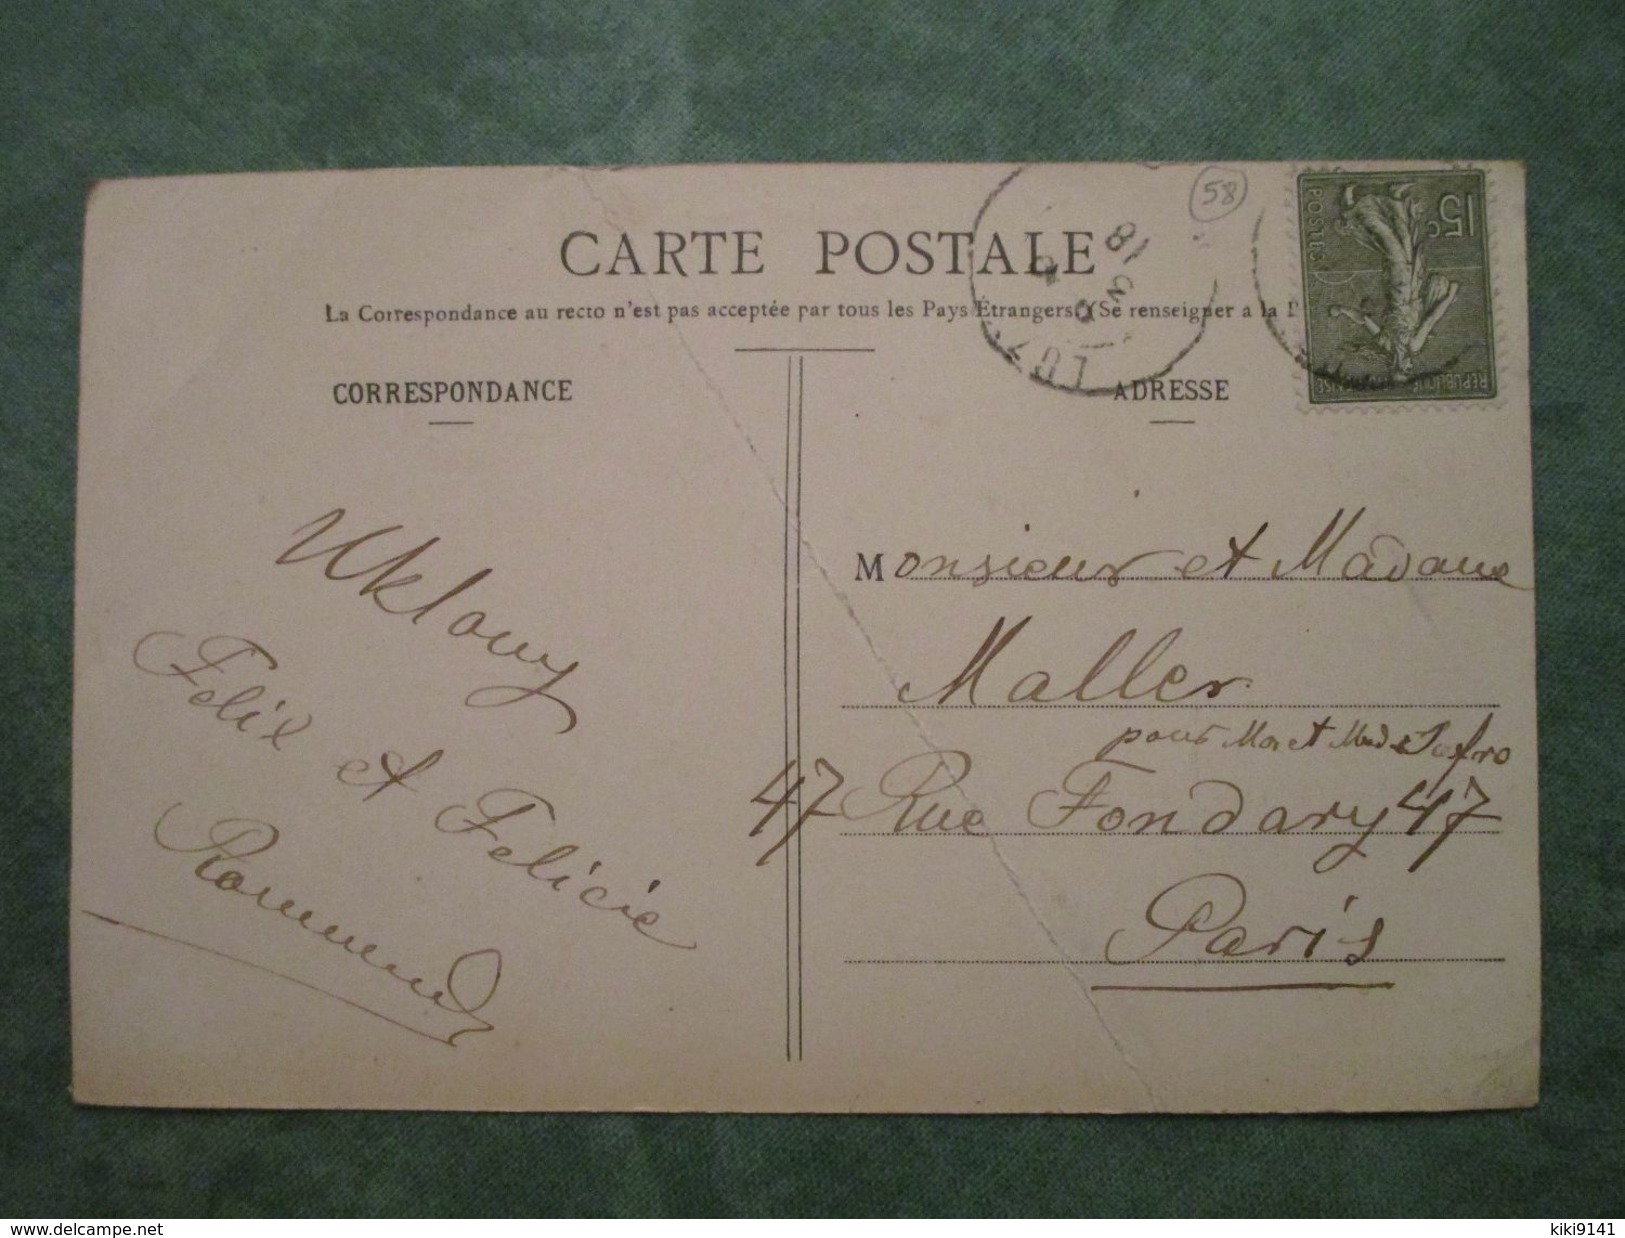 58
CARTE POSTALE
La Correspondance au recto n'est pas acceptée par tous les Pays Étrangers. (Se renseigner à la
CORRESPONDANCE
ADRESSE
15c
POSTES
REPUBLIQUE FRANÇAISE
18
Felix et Felicie
Monsieur et Madame
Maller
pour Mon et Mad
47 Rue Fondary 47
Paris
www.delcampe.net
kiki9141